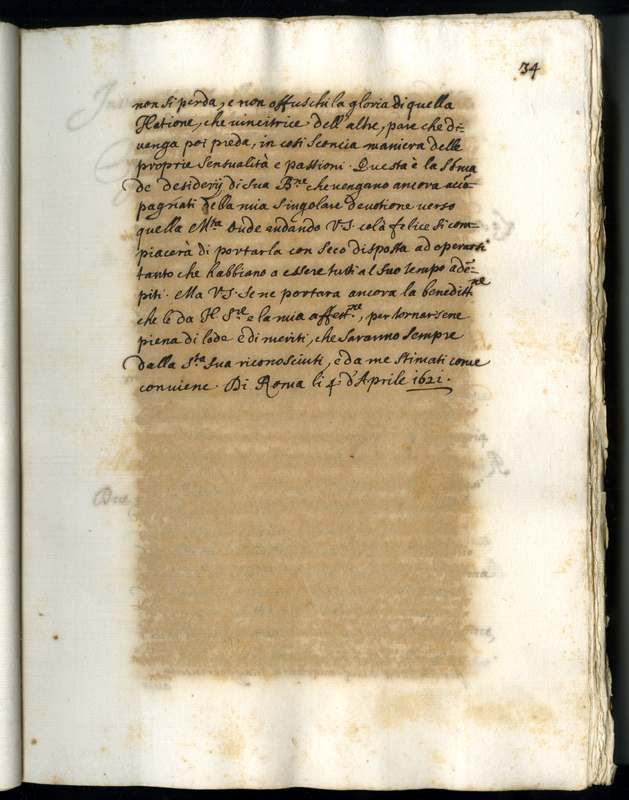 34
non si perda, e non offuschi la gloria di quella
Natione, che vincitrice dell'altre, pare che di=
venga poi preda, in così sconcia maniera delle
proprie sensualità e passioni. Questa è la Sõma
de desiderij di Sua B.ne che vengano ancora accõ=
pagnati della mia singolare devotione verso
quella M.tà Onde andando V.S. colà felice si com=
piacerà di portarla con seco disposta ad operarsi
tanto che habbiano a essere tutti al suo tempo adẽ=
piti. Ma V.S. se ne portara ancora la beneditt.ne
che le da N. S.re e la mia affett.ne, per tornarsene
piena di lode e di meriti, che saranno sempre
dalla S.ta Sua riconosciuti, e da me stimati come
conviene. Di Roma li 4 d'Aprile 1621.